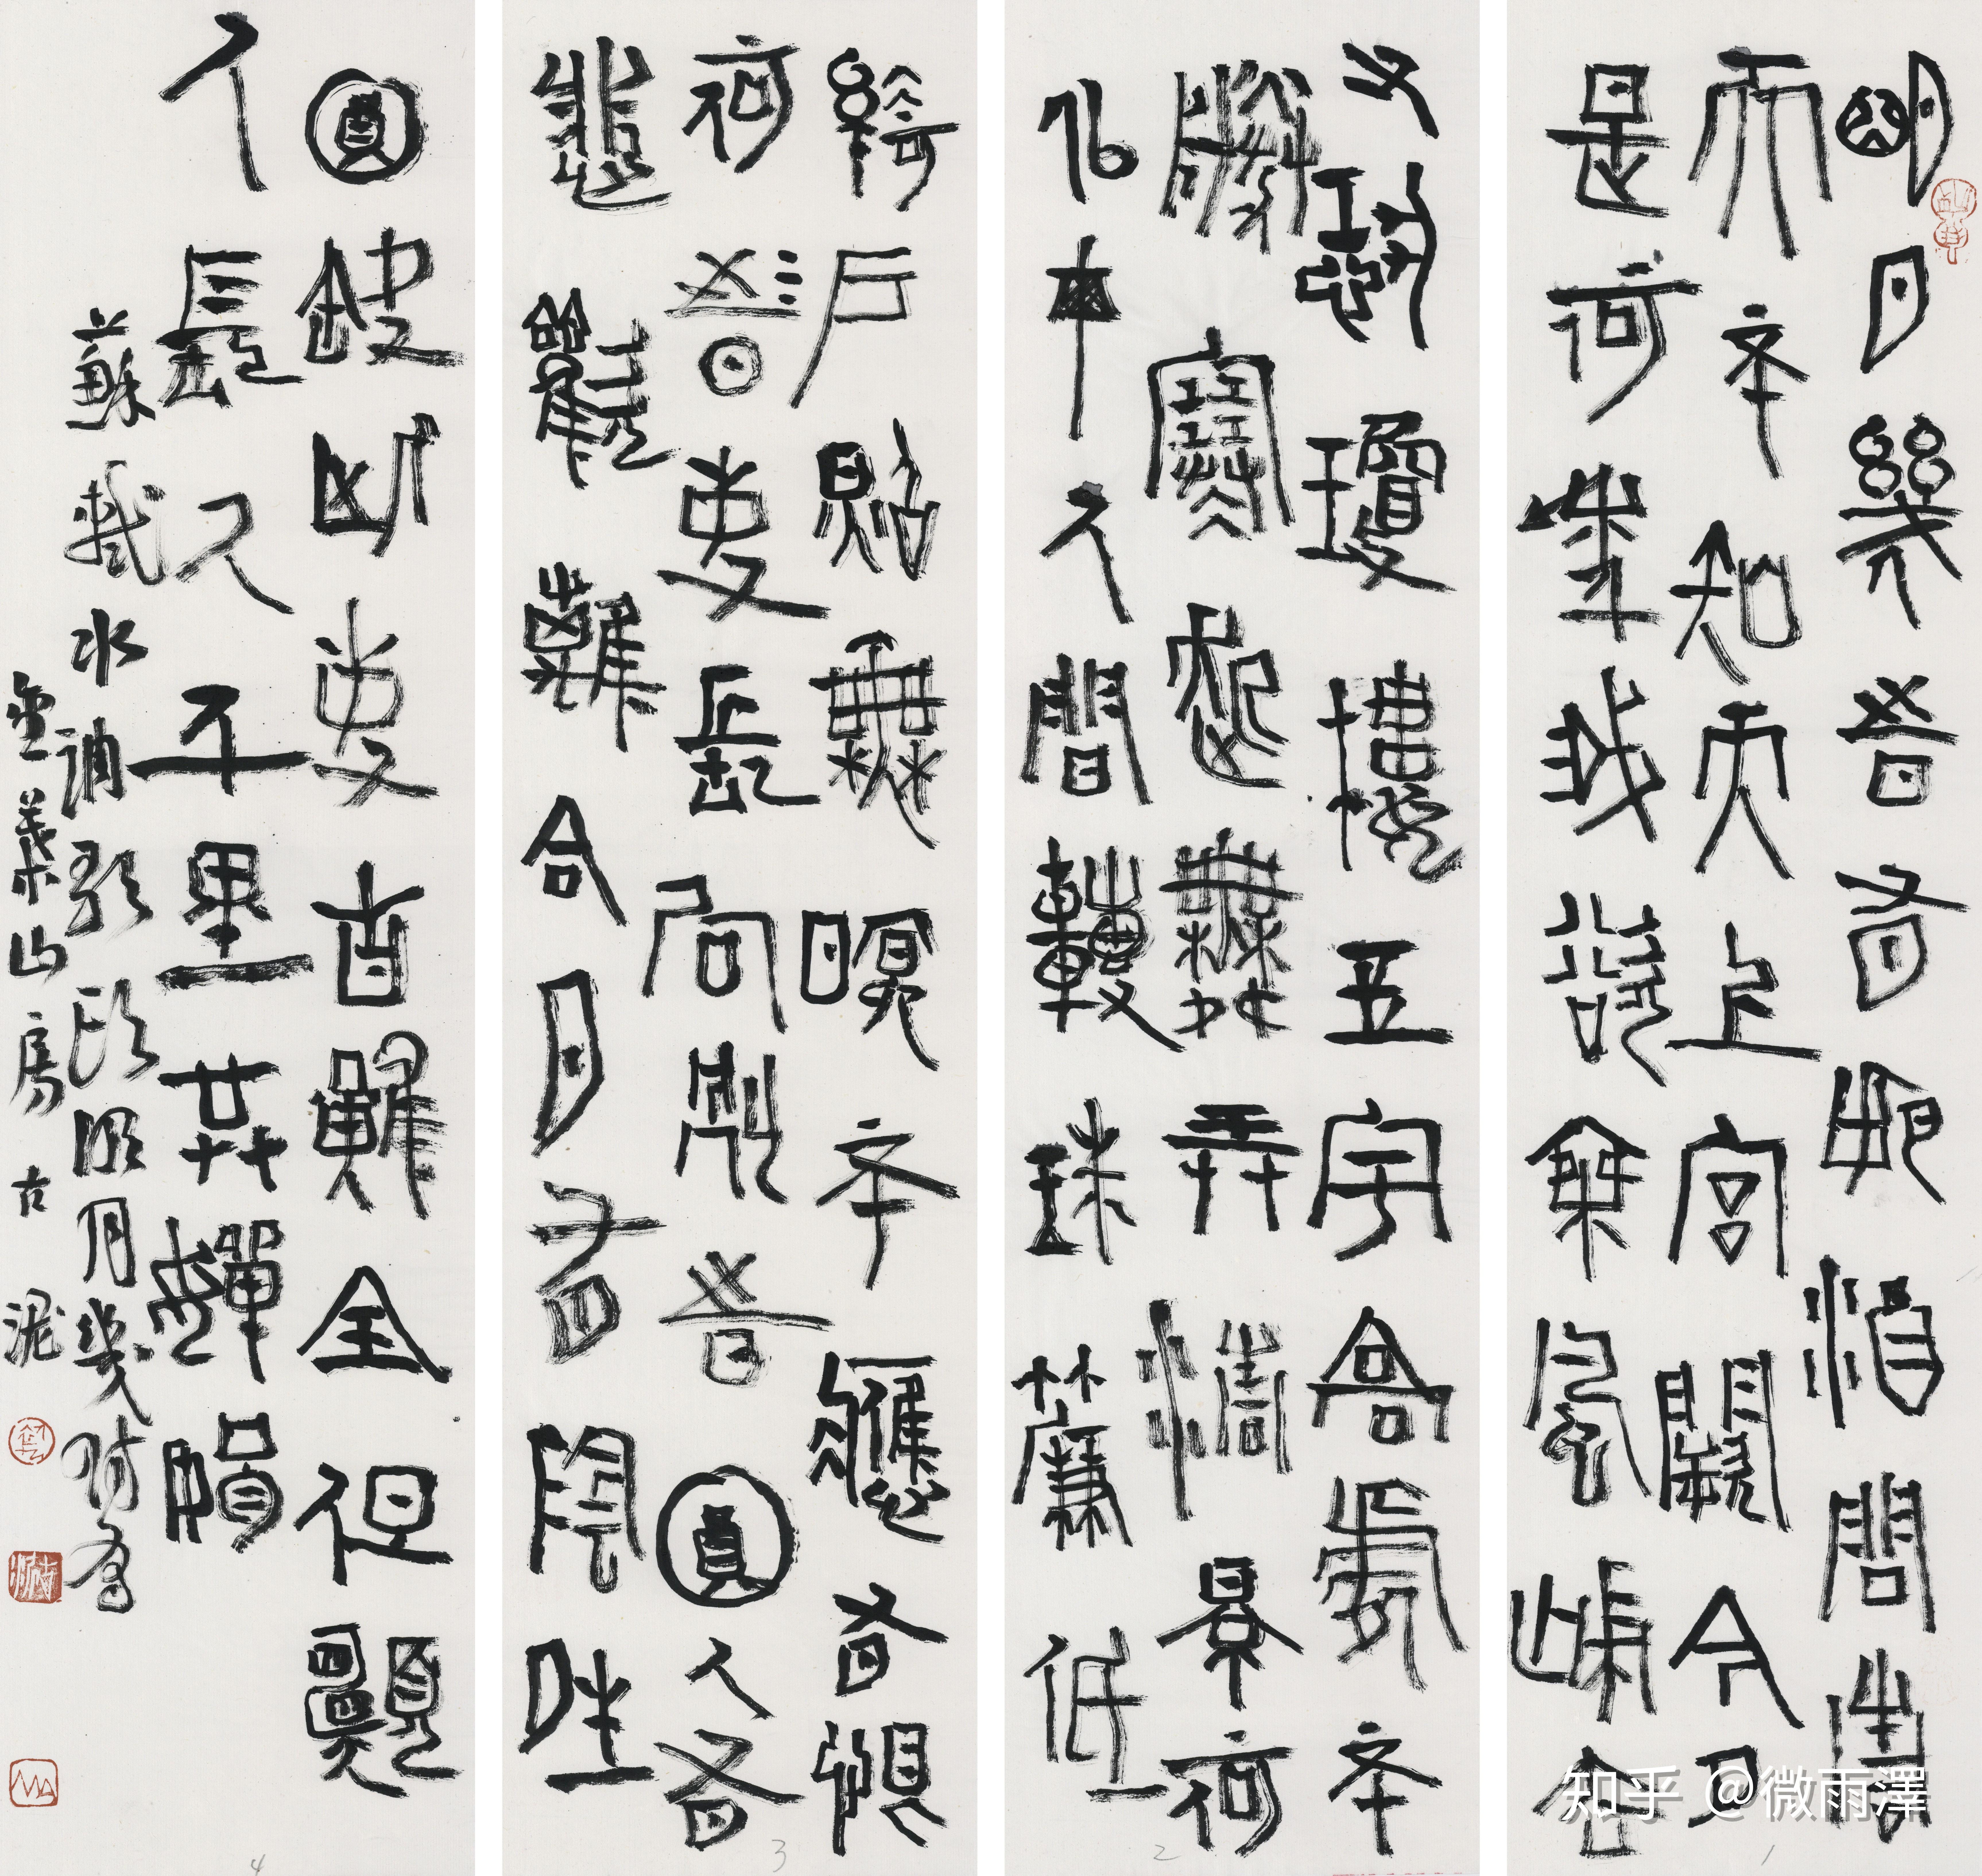 明月幾時有把酒問青
天不知天上宮闕今夕
是何年我欲乘風歸去
又恐瓊樓玉宇高處不
勝寒起舞弄清影何
似在人間轉珠簾低
綺戶照無眠不應有恨
何時事長向別時圓人有
悲歡離合月有陰晴
圓缺此事古難全但願
人長久千里共嬋娟
蘇軾水調歌頭明月幾時有
山房古泥
知乎 @微雨澤